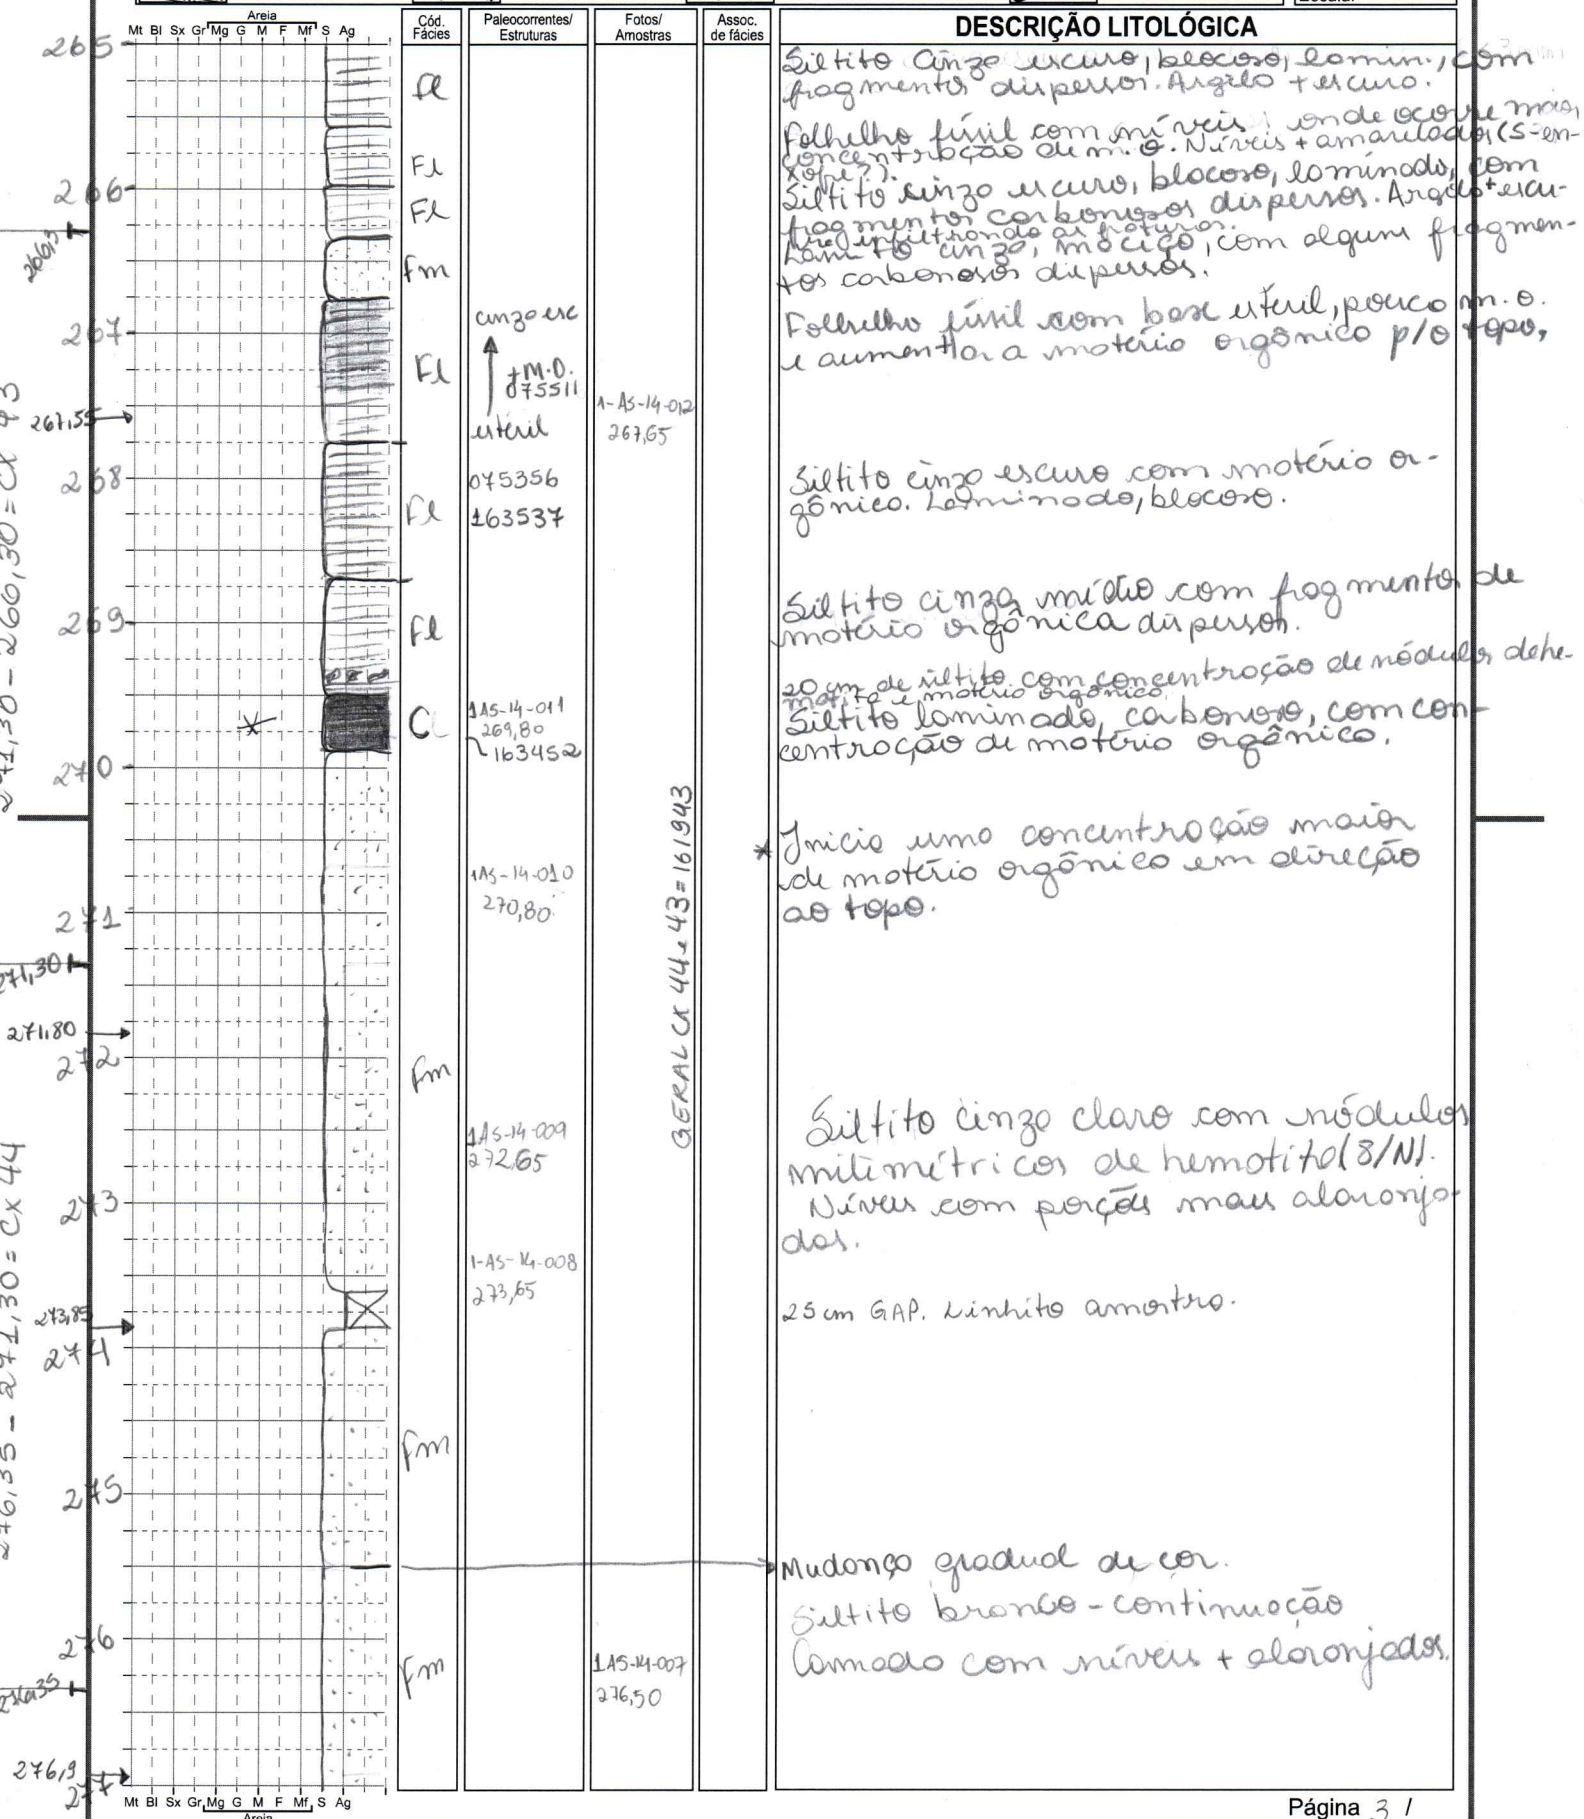 Areia
Mt Bl Sx Gr Mg G M F Mf S Ag
Cód. Fácies
Paleocorrentes/ Estruturas
Fotos/ Amostras
Assoc. de fácies
DESCRIÇÃO LITOLÓGICA
265
266
266,3
267
267,55
268
269
270
271
271,30
271,80
272
273
273,85
274
275
276
276,35
276,9
277
271,30 - 260,30 = CX 43
276,35 - 271,30 = CX 44
Fl
Fl
Fl
Fm
Fl
Fl
Fl
C
Fm
Fm
Fm
cinza esc
+M.O.
075511
estéril
075356
163537
1AS-14-011
269,80
163452
1AS-14-010
270,80
1AS-14-009
272,65
1-AS-14-008
273,65
1-AS-14-012
267,65
GERAL CX 44 e 43 = 161943
1AS-14-007
276,50
Siltito cinza escuro, blocoso, lamin., com
fragmentos dispersos. Argila + escuro.
Folhelho físsil com níveis onde ocorre maior
concentração de m.o. Níveis + amarelados (S-en-
xofre?).
Siltito cinza escuro, blocoso, laminado, com
fragmentos carbonosos dispersos. Argila + escu-
ra infiltrando as fraturas.
Lamito cinza, maciço, com alguns fragmen-
tos carbonosos dispersos.
Folhelho físsil com base estéril, pouco m.o.
e aumentar a matéria orgânica p/o topo,
Siltito cinza escuro com matéria or-
gânica. Laminado, blocoso.
Siltito cinza médio com fragmentos de
matéria orgânica dispersos.
20 cm de siltito com concentração de nódulos de he-
matita e matéria orgânica
Siltito laminado, carbonoso, com con-
centração de matéria orgânica.
* Inicia uma concentração maior
de matéria orgânica em direção
ao topo.
Siltito cinza claro com nódulos
milimétricos de hematita (8/N).
Níveis com porções mais alaranja-
das.
25 cm GAP. Linhito amostra.
Mudança gradual de cor.
Siltito branco - continuação
Camada com níveis + alaranjados.
Mt Bl Sx Gr Mg G M F Mf S Ag
Areia
Página 3 /